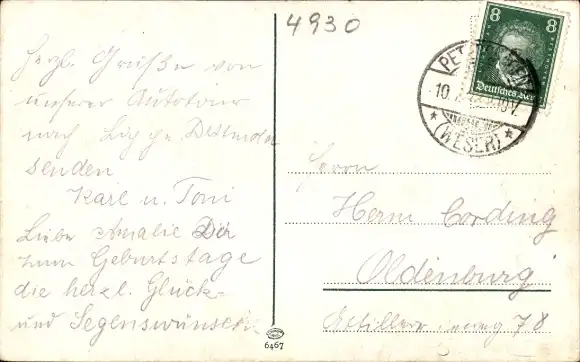 4930
Herzl. Grüße von
unserer Autotour
nach Detmold
senden
Karl u. Toni
Liebe Amalie Dir
zum Geburtstage
die herzl. Glück-
und Segenswünsche
6467
8 8
Deutsches Reich
10
(WESER)
Herrn
Herm Cording
Oldenburg
78